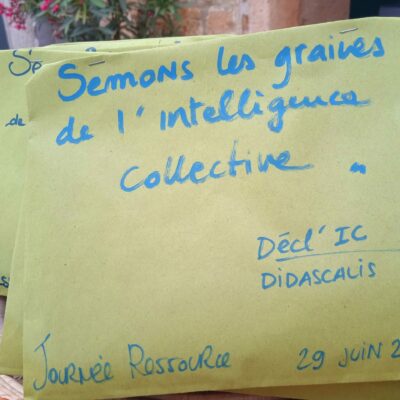 Semons les graines
de l'intelligence
collective "
Décl'IC
DIDASCALIS
JOURNÉE RESSOURCE
29 JUIN 2
Sp
de